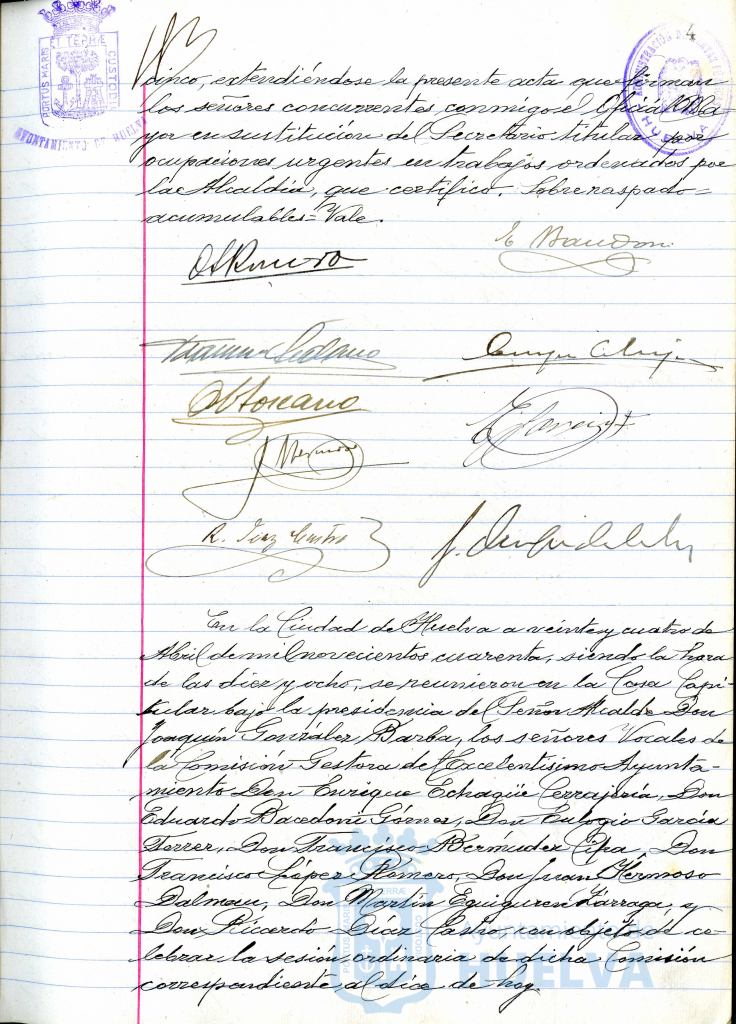 4
PORTUS MARIS
ET TERRÆ
CUSTODIA
AYUNTAMIENTO DE HUELVA
HUELVA
cinco, extendiéndose la presente acta que firman
los señores concurrentes, conmigo el Oficial Ma-
yor en sustitución del Secretario titular, por
ocupaciones urgentes en trabajos ordenados por
la Alcaldía, que certifico. Sobrerraspado=
acumulables= Vale.
R. Díaz Castro
En la Ciudad de Huelva a veinte y cuatro de
Abril de mil novecientos cuarenta, siendo la hora
de las diez y ocho, se reunieron en la Casa Capi-
tular bajo la presidencia del Señor Alcalde Don
Joaquín González Barba, los señores Vocales de
la Comisión Gestora del Excelentísimo Ayunta-
miento Don Enrique Echagüe Cerrajería, Don
Eduardo Bacedoni Gómez, Don Eulogio García
Forrer, Don Francisco Bermúdez Cepa, Don
Francisco López Romero, Don Juan Hermoso
Dalmau, Don Martín Eguiguren Lárraga, y
Don Ricardo Díaz Castro, con objeto de ce-
lebrar la sesión ordinaria de dicha Comisión
correspondiente al día de hoy.
Ayuntamiento de
HUELVA